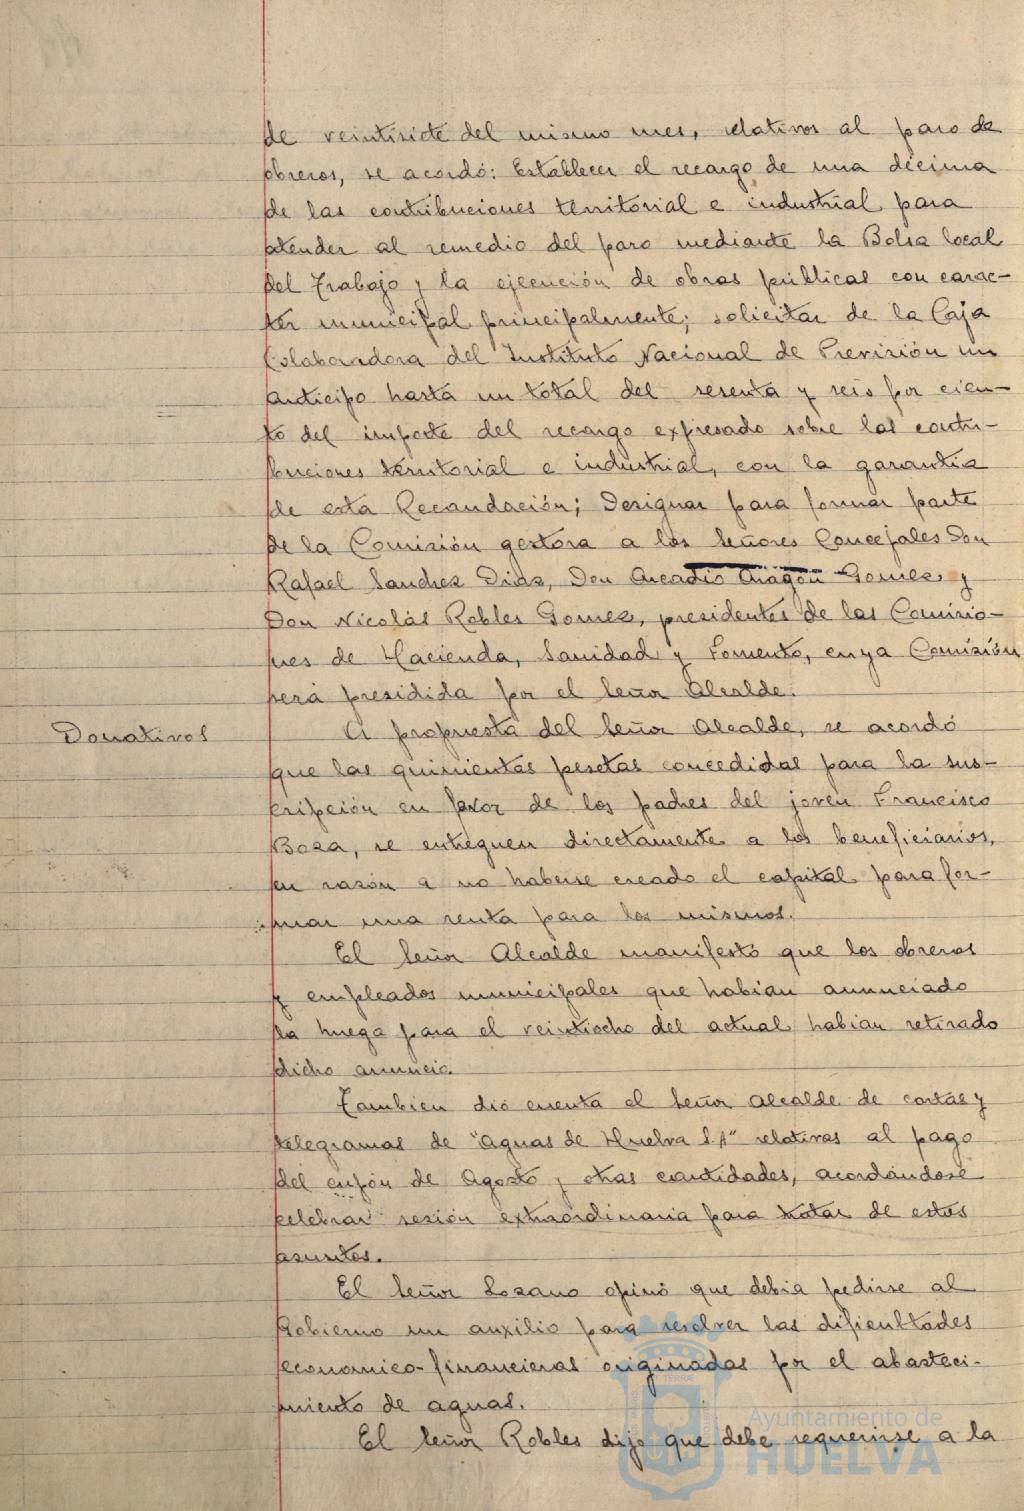 de veintisiete del mismo mes, relativos al paro de
obreros, se acordó: Establecer el recargo de una décima
de las contribuciones territorial e industrial para
atender al remedio del paro mediante la Bolsa local
del Trabajo y la ejecución de obras públicas con carac-
ter municipal principalmente; solicitar de la Caja
Colaboradora del Instituto Nacional de Previsión un
anticipo hasta un total del sesenta y seis por cien-
to del importe del recargo expresado sobre las contri-
buciones territorial e industrial, con la garantía
de esta Recaudación; Designar para formar parte
de la Comisión gestora a los Señores Concejales Don
Rafael Sanchez Diaz, Don Arcadio Aragón Gomez y
Don Nicolás Robles Gomez, presidentes de las Comisio-
nes de Hacienda, Sanidad y Fomento, cuya Comisión
será presidida por el Señor Alcalde.
Donativos
A propuesta del Señor Alcalde, se acordó
que las quinientas pesetas concedidas para la sus-
cripción en favor de los padres del joven Francisco
Boza, se entreguen directamente a los beneficiarios,
en razón a no haberse creado el capital para for-
mar una renta para los mismos.
El Señor Alcalde manifestó que los obreros
y empleados municipales que habían anunciado
la huega para el veintiocho del actual habian retirado
dicho anuncio.
Tambien dió cuenta el Señor Alcalde de cartas y
telegramas de "Aguas de Huelva S.A" relativas al pago
del cupón de Agosto y otras cantidades, acordándose
celebrar sesión extraordinaria para tratar de estos
asuntos.
El Señor Lozano opinó que debia pedirse al
Gobierno un auxilio para resolver las dificultades
economico-financieras originadas por el abasteci-
miento de aguas.
El Señor Robles dijo que debe requerirse a la
Ayuntamiento de
HUELVA